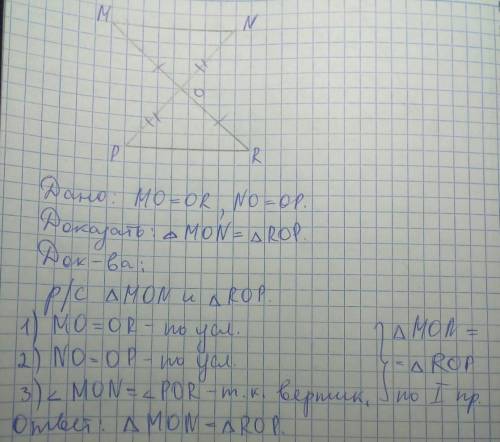 M N
O
P R
Дано: MO=OR, NO=OP.
Доказать: △MON=△ROP.
Док-ва:
Р/С △MON и △ROP.
1) MO=OR - по усл.
2) NO=OP - по усл.
3) ∠MON=∠POR - т.к. вертик.
} △MON=
=△ROP
по I пр.
Ответ: △MON=△ROP.